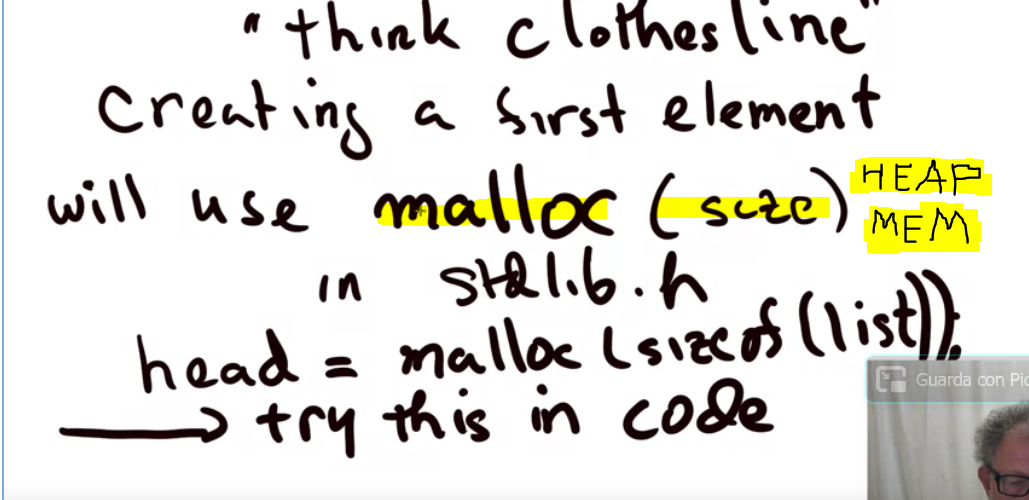 "think clothesline"
Creating a first element
will use malloc (size) HEAP
MEM
in stdlib.h
head = malloc (sizeof (list));
Guarda con Pic
→ try this in code